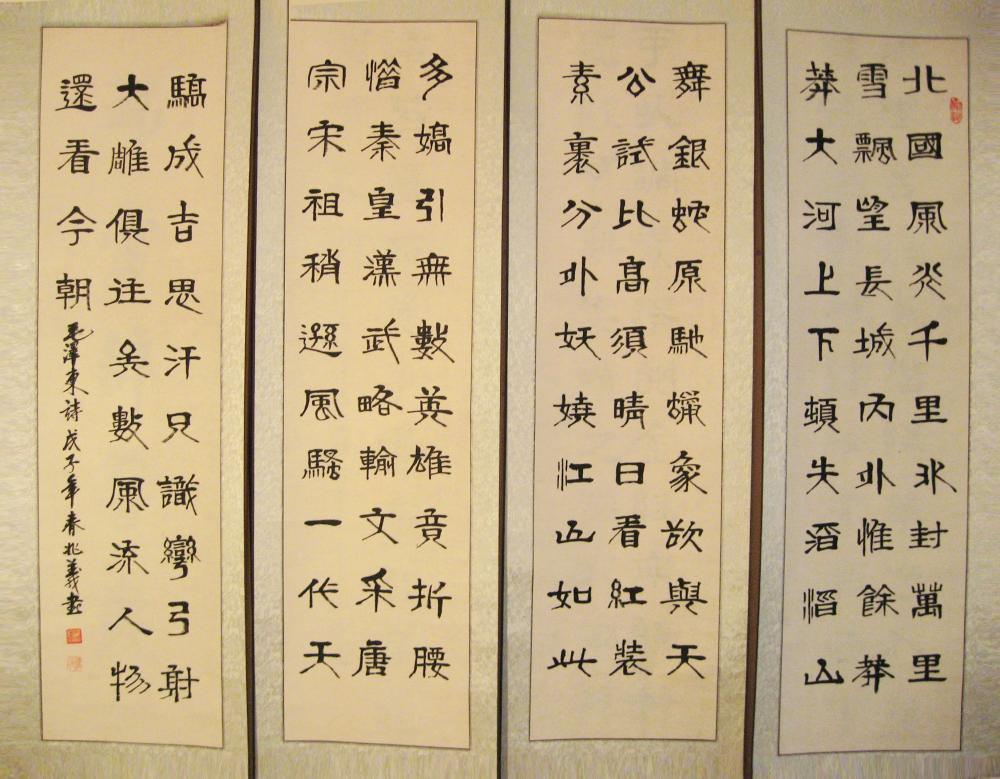 北國風光千里冰封萬里
雪飄望長城內外惟餘莽
莽大河上下頓失滔滔山
舞銀蛇原馳蠟象欲與天
公試比高須晴日看紅裝
素裹分外妖嬈江山如此
多嬌引無數英雄竟折腰
惜秦皇漢武略輸文采唐
宗宋祖稍遜風騷一代天
驕成吉思汗只識彎弓射
大雕俱往矣數風流人物
還看今朝毛澤東詩戊子年春兆義書